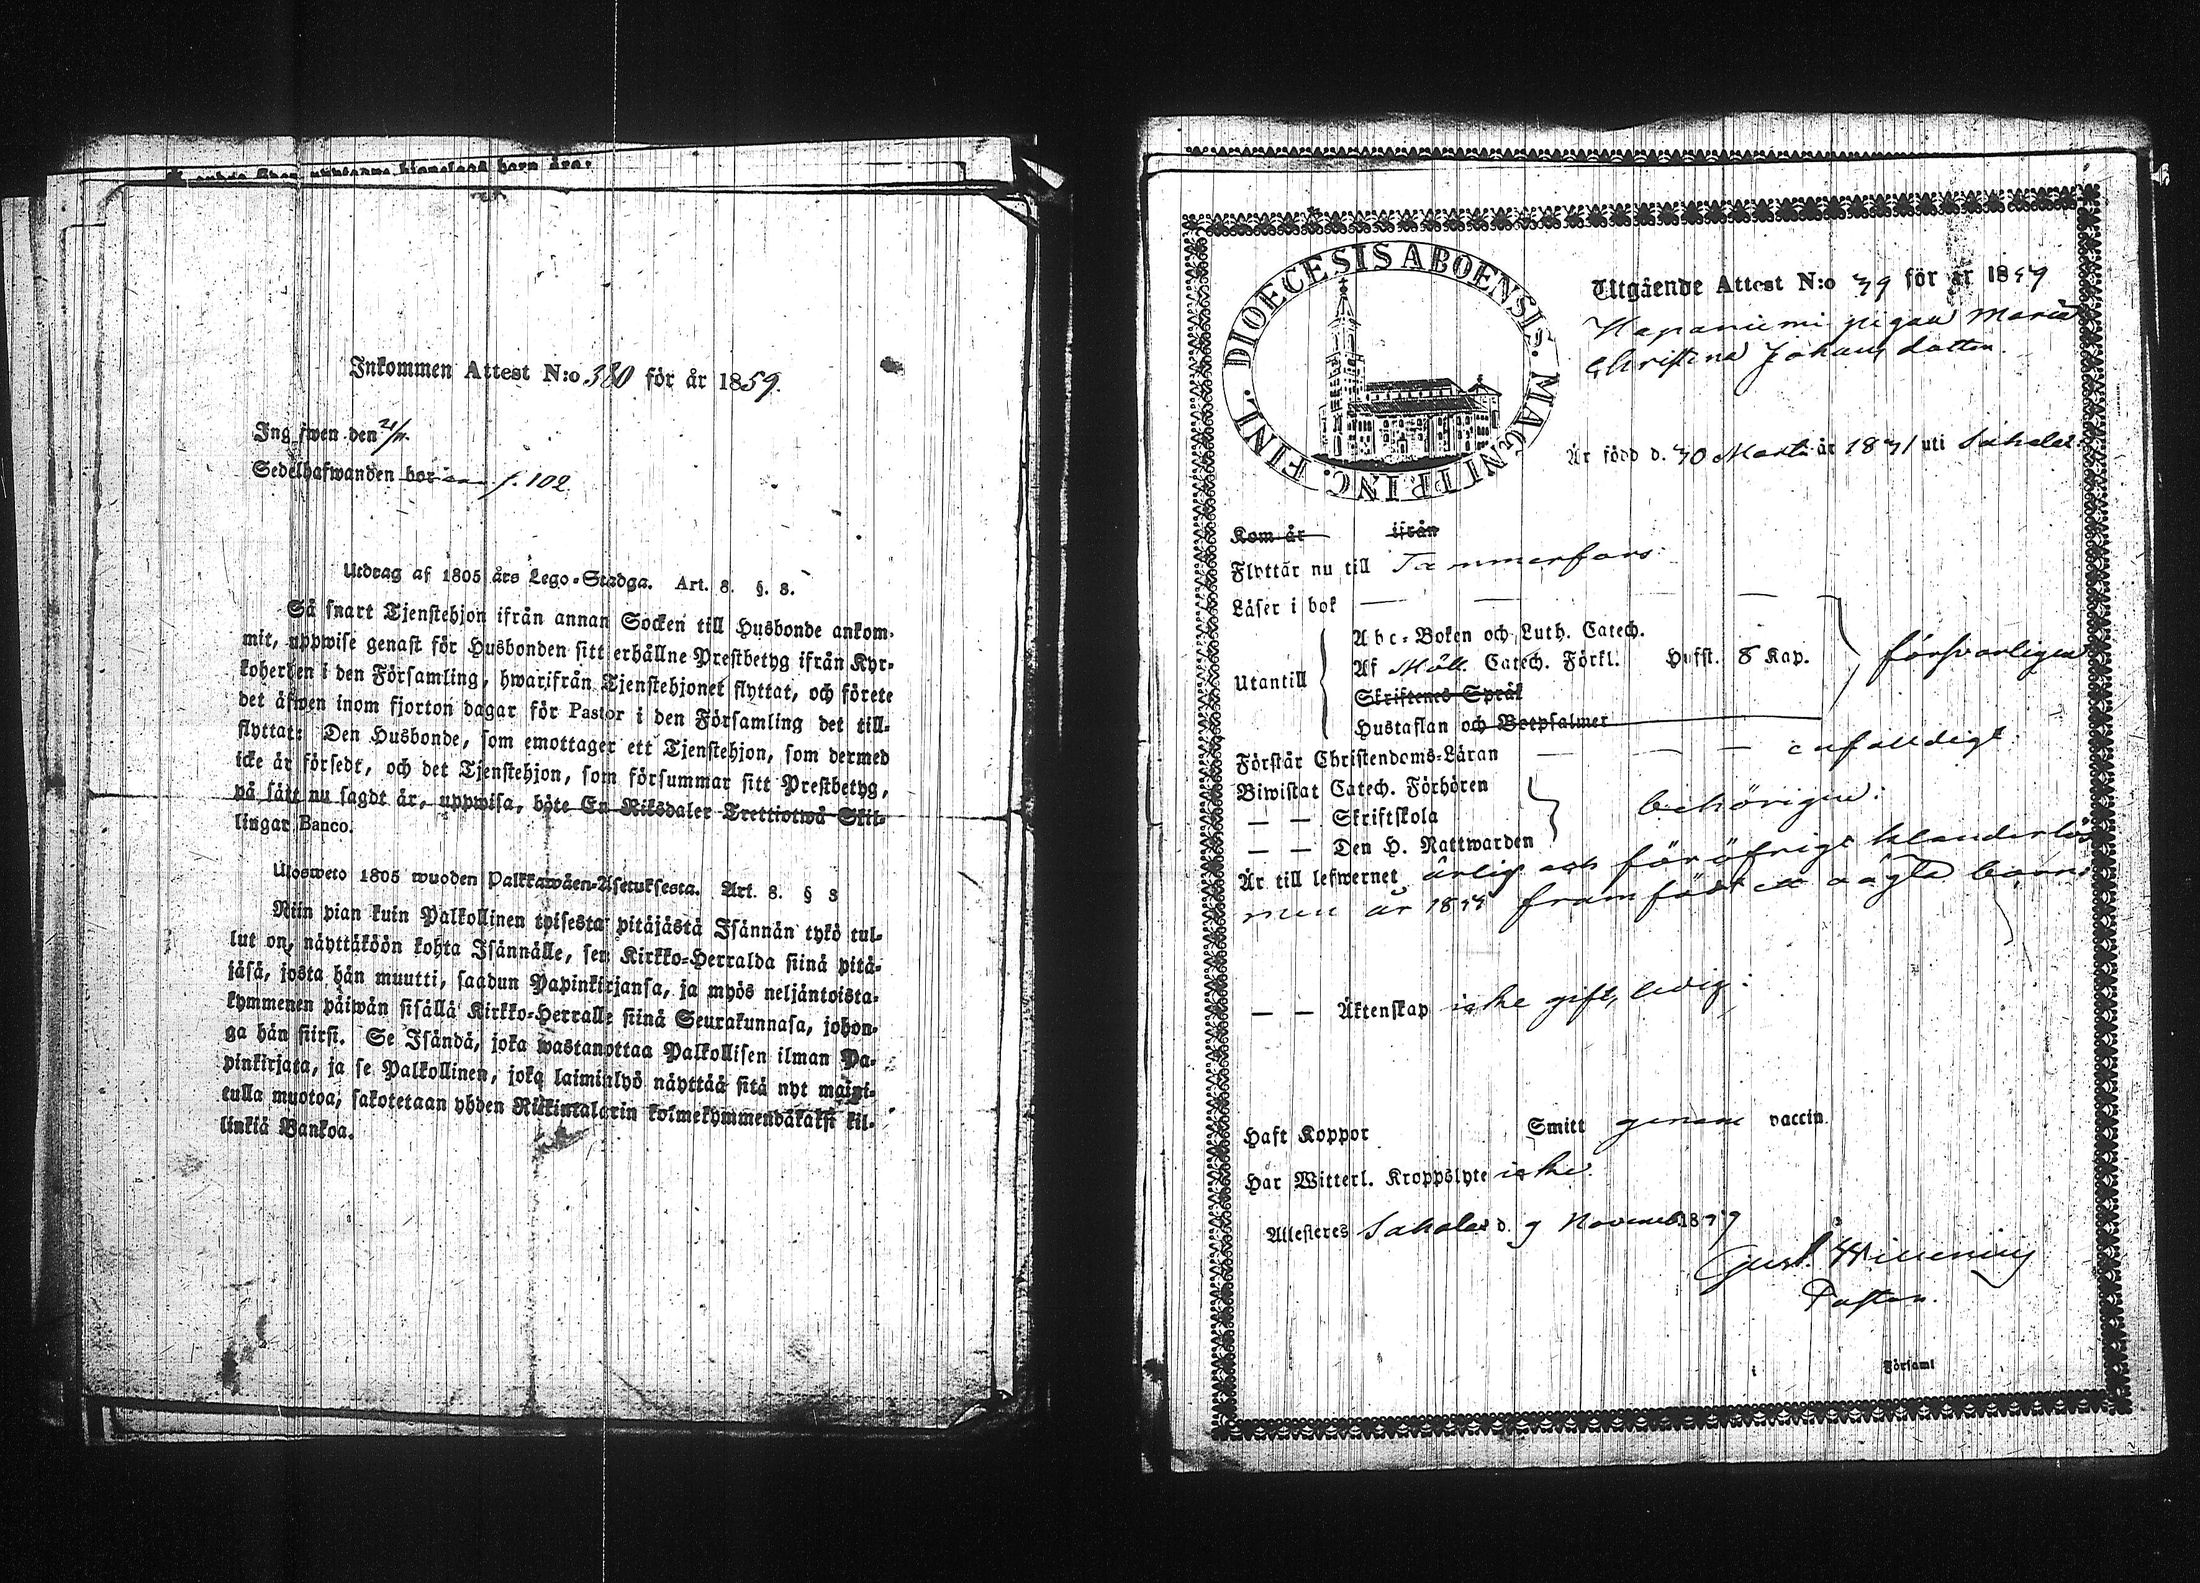 Inkommen Attest N:o 380 för år 1859.
Ing ifwen den 21/11.
Sedelhafwanden bor f. 102
Utdrag af 1805 års Lego-Stadga. Art. 8. §. 8.
Så snart Tjenstehjon ifrån annan Socken till Husbonde ankom-
mit, uppwise genast för Husbonden sitt erhållne Prestbetyg ifrån Kyr-
koherden i den Församling, hwarifrån Tjenstehjonet flyttat, och förete
det äfwen inom fjorton dagar för Pastor i den Församling det till-
flyttat: Den Husbonde, som emottager ett Tjenstehjon, som dermed
icke är försedt, och det Tjenstehjon, som försummar sitt Prestbetyg,
på sätt nu sagdt är, uppwisa, böte En Riksdaler Trettiotwå Skil-
lingar Banco.
Ulosweto 1805 wuoden Palkkawäen-Asetuksesta. Art. 8. § 8
Niin pian kuin Palkollinen toisesta pitäjästä Isännän tykö tul-
lut on, näyttäköön kohta Isännälle, sen Kirkko-Herralda siinä pitä-
jäsä, josta hän muutti, saadun Papinkirjansa, ja myös neljäntoista-
kymmenen päiwän sisällä Kirkko-Herralle siinä Seurakunnasa, johon-
ga hän siirsi. Se Isändä, joka wastanottaa Palkollisen ilman Pa-
pinkirjata, ja se Palkollinen, joka laiminlyö näyttää sitä nyt maini-
tulla muotoa, sakotetaan yhden Riikintalarin kolmekymmendäkaksi kil-
linkiä Bankoa.
DIOECESIS ABOENSIS. MAGNI PRINC. FINL.
Utgående Attest N:o 39 för år 1859
Hapaniemi pigan Maria
Christina Johans dotter.
Är född d. 30 Martii år 1831 uti Sahalax
Kom år ifrån
Flyttar nu till Tammerfors.
Läser i bok
Utantill
Abc-Boken och Luth. Catech.
Af Möll. Catech. Förkl. Hufst. 8 Kap. försvarligen
Skriftenes Språk
Hustaflan och Botpsalmer
Förstår Christendoms-Läran enfalldigt
Biwistat Catech. Förhören
— — Skriftskola behörigen:
— — Den H. Nattwarden
Är till lefwernet ärlig och för öfrigt klanderlös
men år 1854 framfödt ett oägta barn.
— — Äktenskap icke gift, ledig:
Haft Koppor Smitt genom vaccin
Har Witterl. Kroppslyte icke.
Attesteras Sahalax d. 9 Novemb. 1859
Gust.
Pastor.
Församl